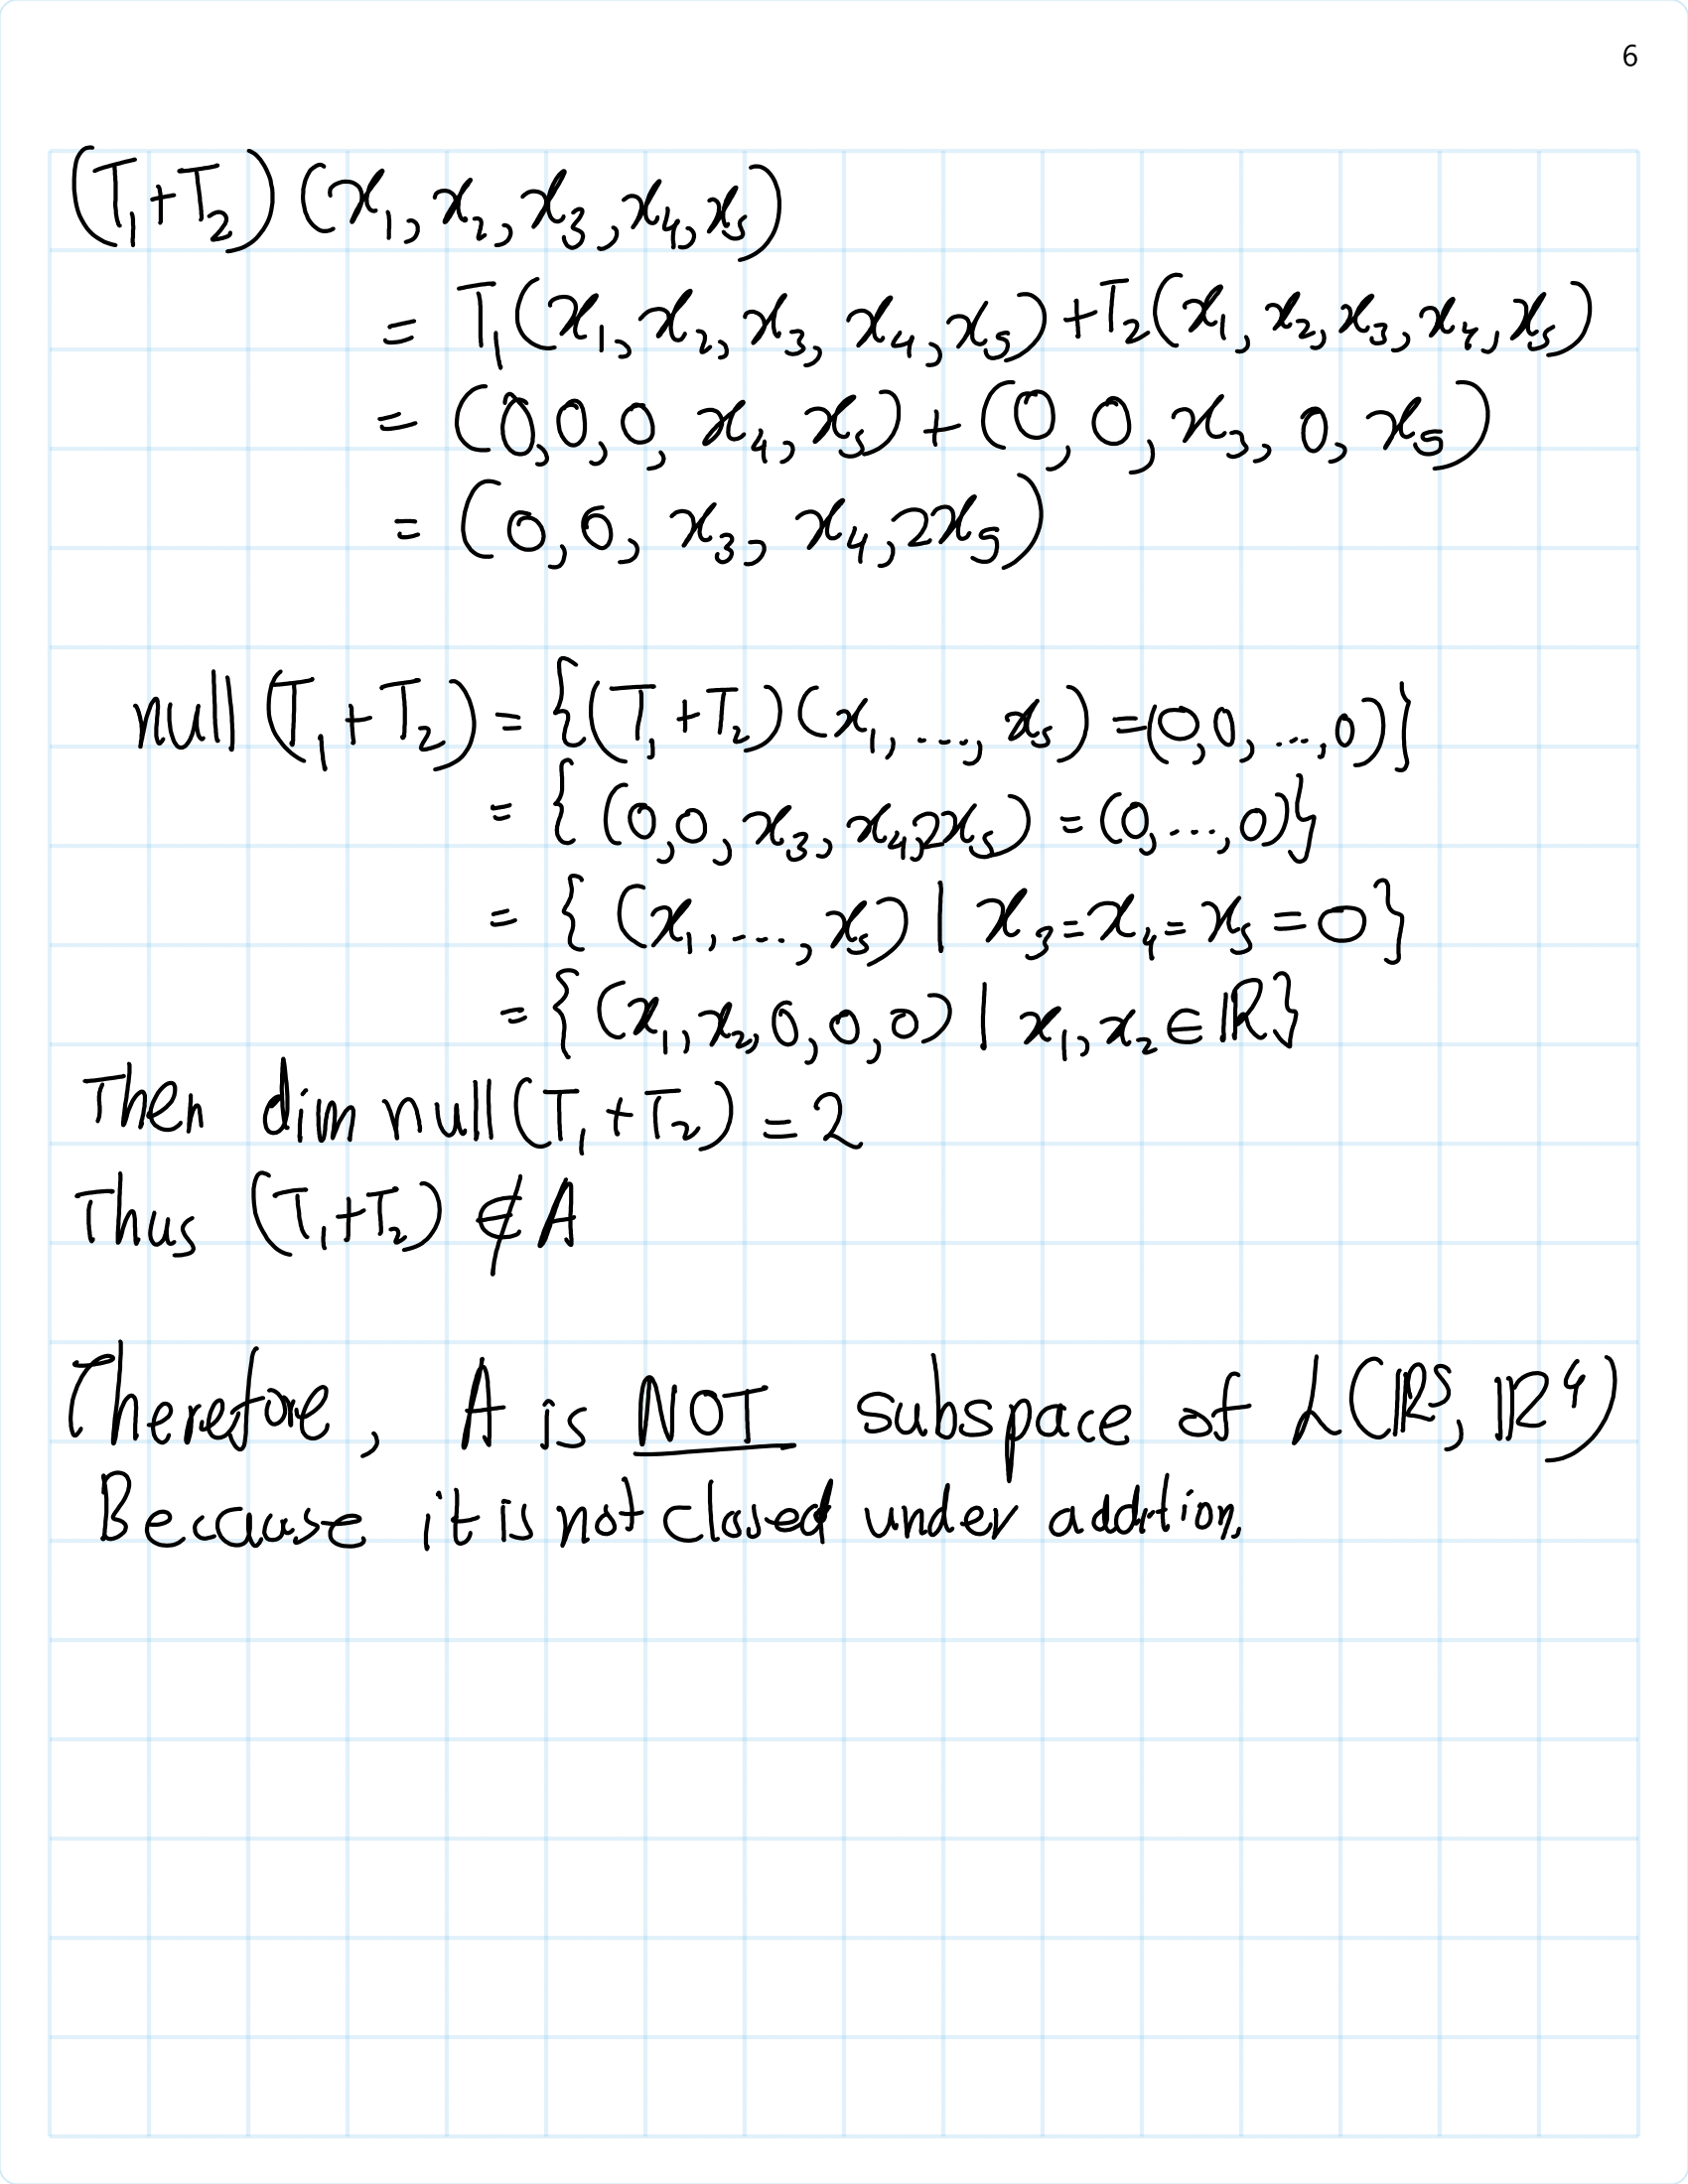 6
(T₁+T₂)(x₁,x₂,x₃,x₄,x₅)
= T₁(x₁,x₂,x₃,x₄,x₅)+T₂(x₁,x₂,x₃,x₄,x₅)
= (0,0,0,x₄,x₅)+(0,0,x₃,0,x₅)
= (0,0,x₃,x₄,2x₅)
null(T₁+T₂) = {(T₁+T₂)(x₁,...,x₅) = (0,0,...,0)}
= {(0,0,x₃,x₄,2x₅) = (0,...,0)}
= {(x₁,...,x₅) | x₃=x₄=x₅=0}
= {(x₁,x₂,0,0,0) | x₁,x₂∈ℝ}
Then dim null(T₁+T₂) = 2
Thus (T₁+T₂) ∉ A
Therefore, A is NOT subspace of L(ℝ⁵,ℝ⁴)
Because it is not closed under addition.